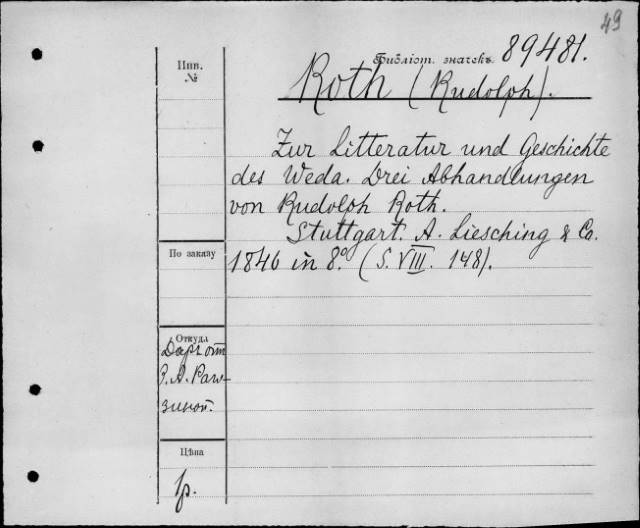 49
Библіот. значекъ 89481.
Инв.
№
Roth (Rudolph).
Zur Litteratur und Geschichte
des Weda. Drei Abhandlungen
von Rudolph Roth.
Stuttgart. A. Liesching & Co.
По заказу
1846 in 8.º (S. VIII. 148).
Откуда
Даръ отъ
З. А. Раго-
зиной.
Цѣна
1р.